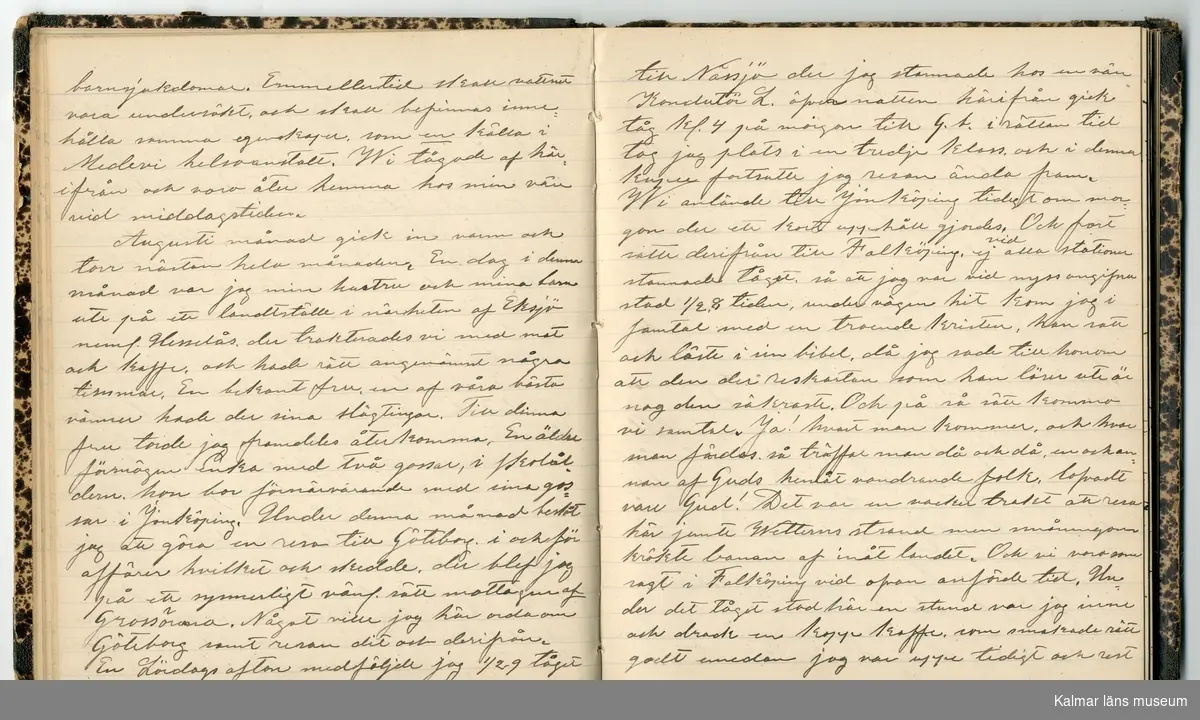 barnsjukdomar. Emmellertid skall vattnet
vara undersökt, och skall befinnas inne-
hålla samma egenskaper, som en källa i
Medevi helsoanstalt. Wi tågade af här-
ifrån och voro åter hemma hos min vän
vid middagstiden.
Augusti månad gick in varm och
torr nästan hela månaden. En dag i denna
månad var jag min hustru och mina barn
ute på ett landtställe i närheten af Eksjö
nemf. Hesselås. der trakterades vi med mat
och kaffe, och hade rätt angenämt några
timmar. En bekant fru, en af våra bästa
vänner hade der sina slägtingar. Till denna
fru torde jag framdeles återkomma. En äldre
förmögen Enka med två gossar, i skolål-
dern. hon bor förnärvarande med sina gos-
sar i Jönköping. Under denna månad beslöt
jag att göra en resa till Göteborg. i och för
affärer hvilket och skedde, der blef jag
på ett synnerligt vänf. sätt mottagen af
Grossörerna. Något vill jag här orda om
Göteborg samt resan dit och derifrån.
En Lördags afton medföljde jag 1/2 9 tåget
till Nässjö der jag stannade hos en vän
Konduktör L. öfver natten härifrån gick
tåg kl. 4 på morgon till G.b. i rättan tid
tog jag plats i en tredje klass. och i denna
kupee fortsatte jag resan ända fram.
Wi anlände till Jönköping tidigt om mor-
gon der ett kort uppehåll gjordes. Och fort
satte derifrån till Falköping, ej vid alla stationer
stannade tåget. så att jag var vid nyss angifna
stad 1/2 8 tiden, under vägen hit kom jag i
samtal med en troende kristen, han satt
och läste i sin bibel, då jag sade till honom
att den der reskartan som han läser uti är
nog den säkraste. Och på så sätt kommo
vi samtal. Ja! hvart man kommer, och hvar
man färdas. så träffar man då och då, en och an-
nan af Guds hemåt vandrande folk. lofvadt
vare Gud! Det var en vacker trakt att resa
här jemte Wetterns strand men småningom
krökte banan af inåt landet. Och vi voro som
sagt i Falköping vid ofvan anförde tid, Un-
der det tåget stod här en stund var jag inne
och drack en kopp kaffe. som smakade rätt
godt emedan jag var uppe tidigt och rest
Kalmar läns museum